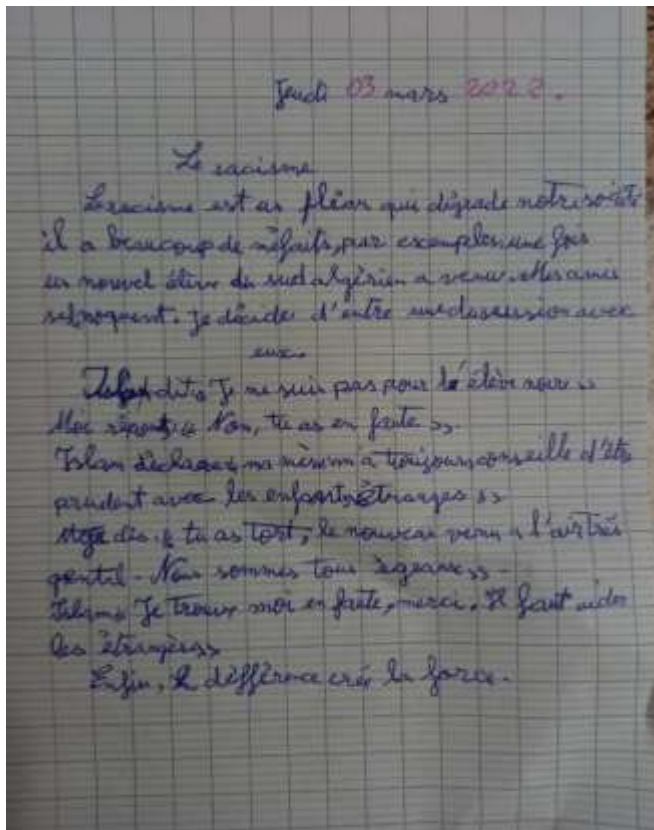 Jeudi 03 mars 2022.
Le racisme
Le racisme est un fléau qui dégrade notre société
il a beaucoup de méfaits, par exemples, une fois
un nouvel élève du sud algérien a venu. Mes amis
se moquent. Je décide d'entre une discussion avec
eux.
Islam dit « Je ne suis pas pour l'élève noir »
Moi réponds « Non, tu as en faute »
Islam déclaque « ma mère m'a toujours conseille d'être
prudent avec les enfants étranges »
dis « tu as tort, le nouveau venu a l'air très
gentil - Nous sommes tous égeaux ».
Islam « Je trouve moi en faute, merci. Il faut aider
les étrangers »
Enfin, la différence crée la force.